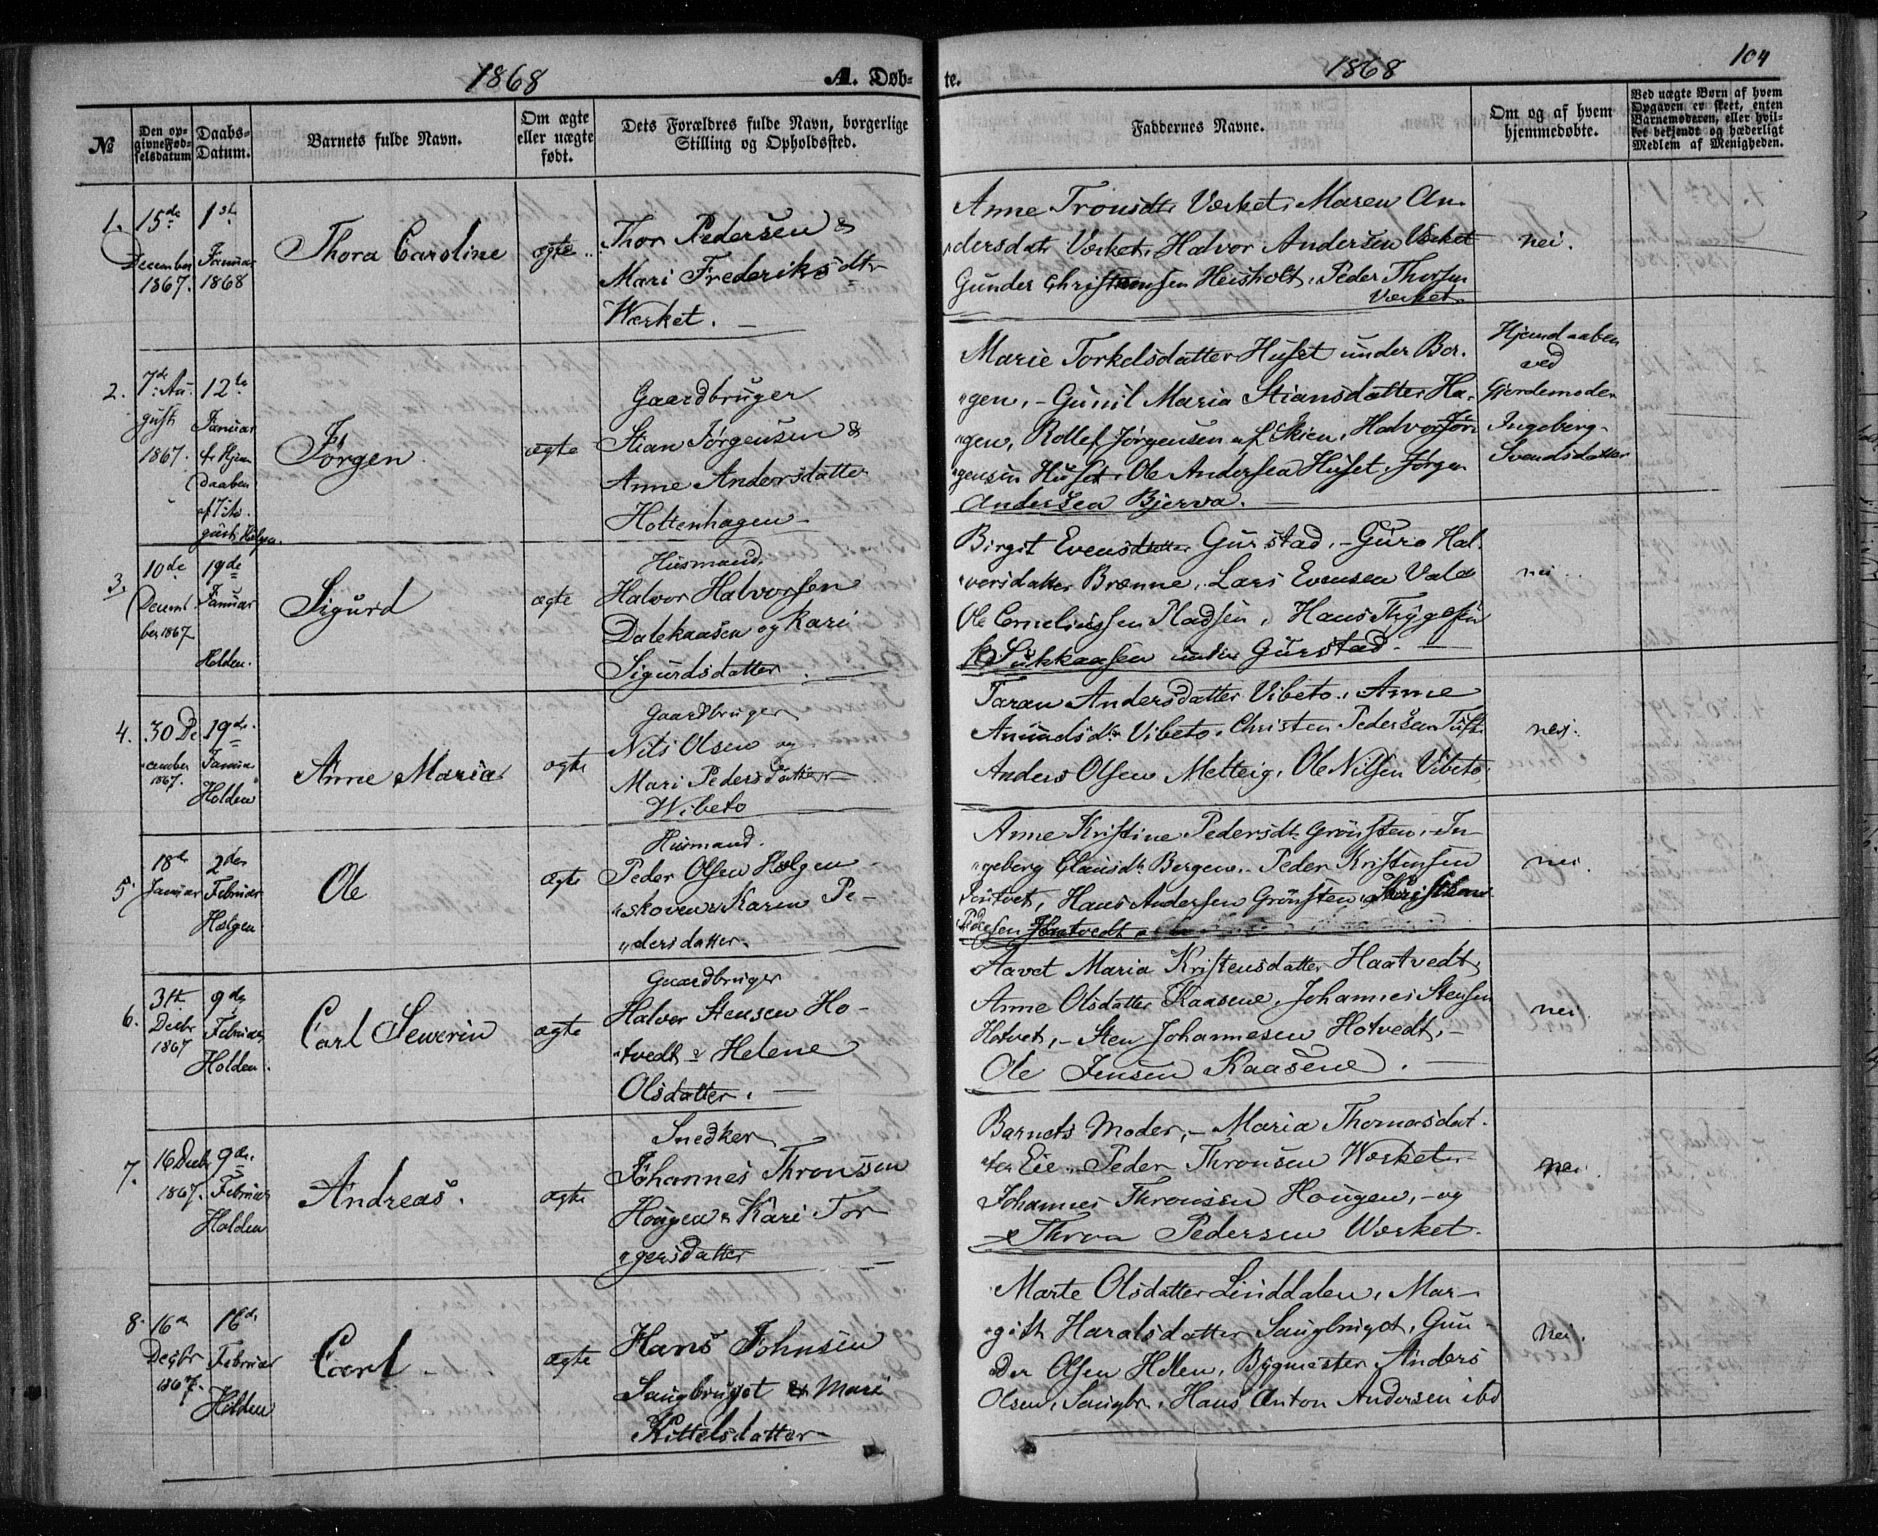 1868
A. Døb-
te.
1868
104
№
Den op-
givne Fød-
selsdatum
Daabs-
Datum.
Barnets fulde Navn.
Om ægte
eller uægte
født.
Dets Forældres fulde Navn, borgerlige
Stilling og Opholdssted.
Faddernes Navne.
Om og af hvem
hjemmedøbte.
Ved uægte Børn af hvem
Opgaven er skeet, enten
Barnemoderen, eller hvil-
ket bekjendt og hæderligt
Medlem af Menigheden.
1.
15de
December
1867.
1ste
Januar
1868
Thora Caroline
ægte
Thor Pedersen &
Mari Frederiksdtr
Værket.
Anne Tronsdtr Værket, Maren An-
dersdatr Værket, Halvor Andersen Værket
Gunder Christensen Heisholt, Peder Thorsen
Værket
nei.
2.
7de Au-
gust
1867.
12te
Januar
fr Hjem
Daaben
af 7 Au-
gust
Jørgen
ægte
Gaardbruger
Stian Jørgensen &
Anne Andersdatter
Holtenhagen
Marie Torkelsdatter Huset under Ber-
gen, - Gunil Maria Stiansdatter Ha-
gen, Rollef Jørgensen af Skien, Halvor Jør-
gensen Huset, Ole Andersen Huset, Jørgen
Andersen Bjerva.
Hjemdaaben
ved
Gjordemoder
Ingeborg
Svendsdatter
3.
10de
Decem-
ber 1867
19de
Januar
Holden.
Sigurd
ægte
Husmand
Halvor Halvorsen
Dalekaasen og Kari
Sigurdsdatter
Birgit Evensdatter Gurstad, - Guro Hal-
vorsdatter Brenne, Lars Evensen Vala
Ole Corneliussen Pladsen, Hans Thygesen
Sukkaasen under Gurstad.
nei
4.
30 De-
cember
1867.
19de
Januar
Holden
Anne Maria
ægte
Gaardbruger
Nils Olsen og
Mari Pedersdatter
Wibeto
Taran Andersdatter Vibeto, Anne
Amundsdtr Vibeto, Christen Pedersen Tuft
Anders Olsen Metteig, Ole Nilsen Vibeto.
nei.
5.
18de
Januar
2den
Februar
Helgen
Ole
ægte
Husmand.
Peder Olsen Helgen-
skoven & Karen Pe-
dersdatter.
Anne Kristine Pedersdtr Grønsten, In-
geborg Clausdtr Bergen, Peder Kristensen
Jøntvet, Hans Andersen Grønsten, Kristen
Pedersen Jøntvedt
nei.
6.
31te
Decbr
1867
9de
Februar
Holden.
Carl Severin
ægte
Gaardbruger
Halvor Stensen Ho-
tvedt & Helene
Olsdatter.
Aavet Maria Kristensdatter Haatvedt,
Anne Olsdatter Kaasene, Johannes Stensen
Hotvet, - Sten Johannesen Hotvedt, -
Ole Jensen Kaasene.
nei.
7.
16 Decbr
1867.
9de
Februar
Holden
Andreas.
ægte
Snedker
Johannes Thronsen
Hougen & Kari Tor-
gersdatter
Barnets Moder, - Maria Thomasdat-
ter Eie, Peder Thronsen Værket
Johannes Thronsen Hougen, - og
Thron Pedersen Værket.
nei.
8.
16de
Decbr
1867.
16de
Februar
Holden
Carl
ægte
Hans Johnsen
Saugbruget & Mari
Kittelsdatter
Marte Olsdatter Linddalen, Mar-
gith Haralsdatter Saugbruget, Gun-
der Olsen Hellen, Bygmester Anders
Olsen, Saugbr, Hans Anton Andersen ibd
nei.